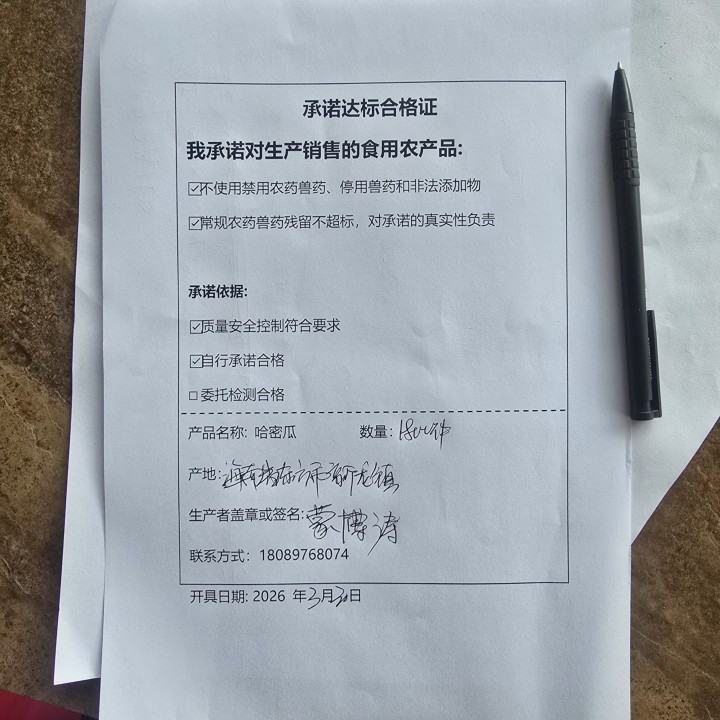 承诺达标合格证
我承诺对生产销售的食用农产品:
☑不使用禁用农药兽药、停用兽药和非法添加物
☑常规农药兽药残留不超标，对承诺的真实性负责
承诺依据:
☑质量安全控制符合要求
☑自行承诺合格
□ 委托检测合格
产品名称: 哈密瓜 数量: 1800件
产地: 海南省东方市 龙镇
生产者盖章或签名: 蒙博涛
联系方式: 18089768074
开具日期: 2026 年3月30日